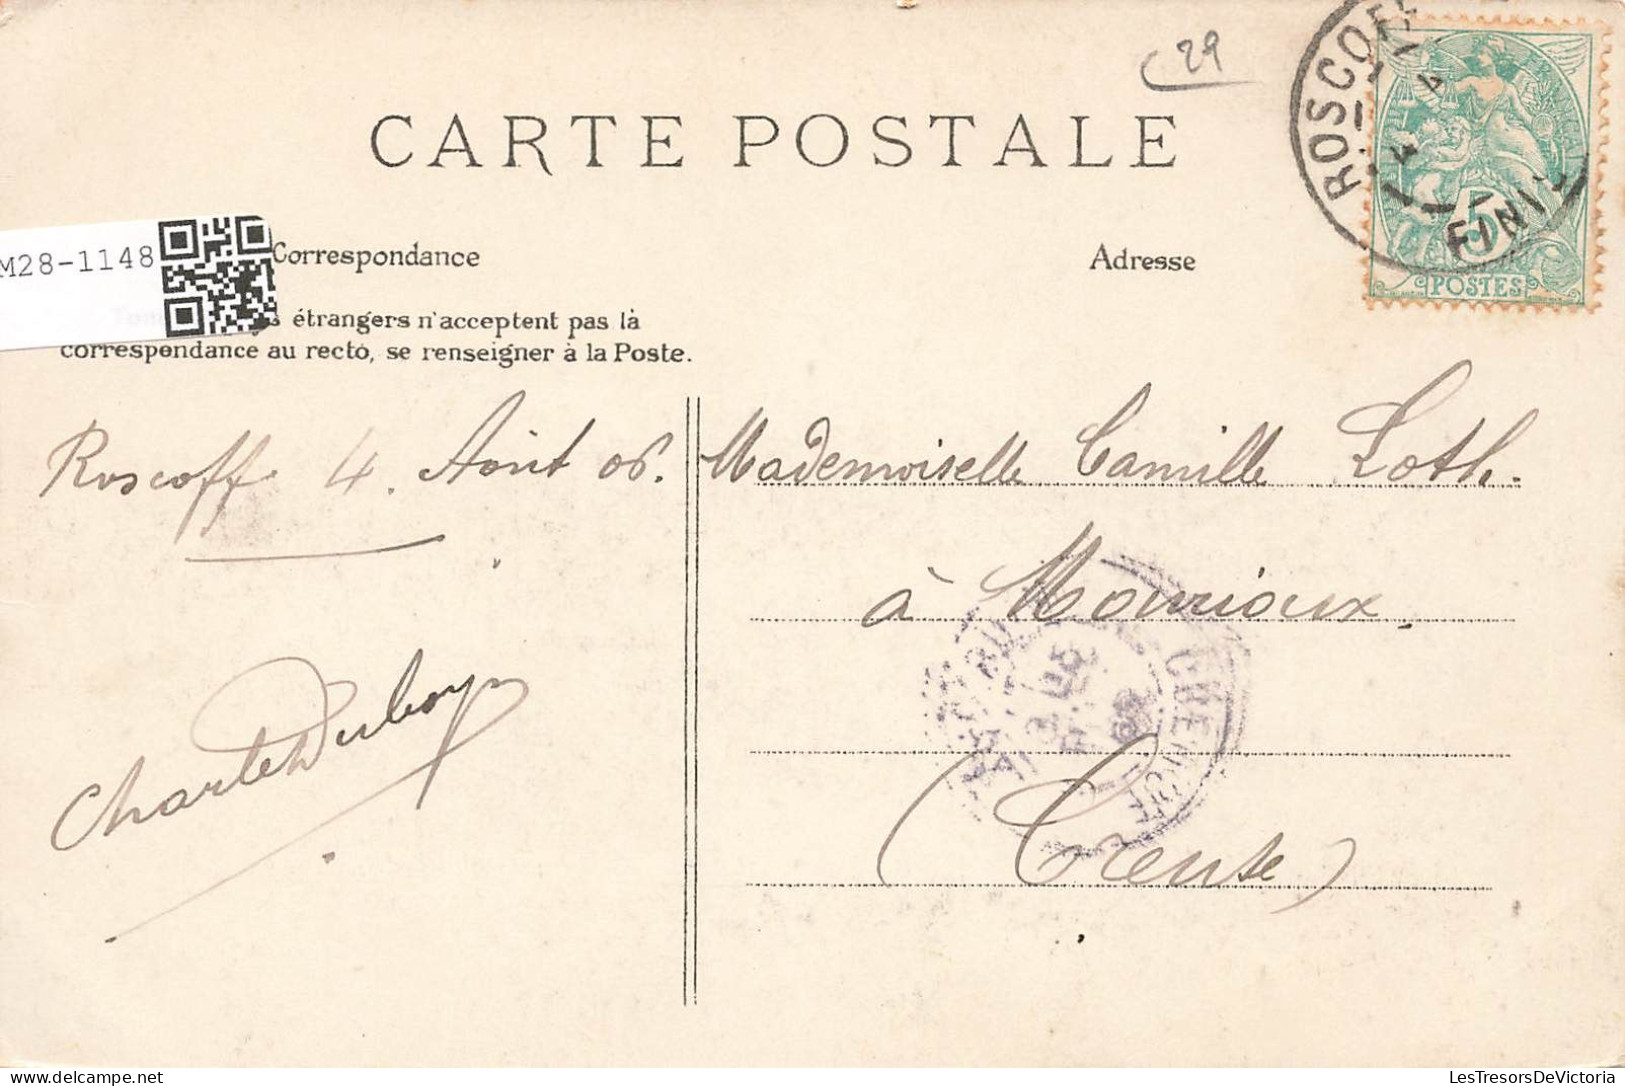 29
CARTE POSTALE
ROSCOFF
FINI
POSTES
5
M28-1148
Correspondance
Adresse
étrangers n'acceptent pas là
correspondance au recto, se renseigner à la Poste.
Roscoff 4. Août 06.
Mademoiselle Camille Loth.
à Mourioux.
(Creuse)
CREUSE
LesTresorsDeVictoria